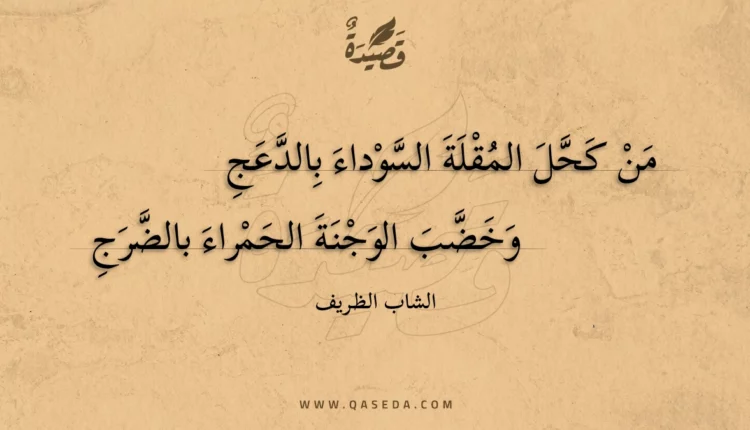 قَصِيدَةٌ
مَنْ كَحَّلَ المُقْلَةَ السَّوْداءَ بِالدَّعَجِ
وَخَضَّبَ الوَجْنَةَ الحَمْراءَ بالضَّرَجِ
الشاب الظريف
WWW.QASEDA.COM